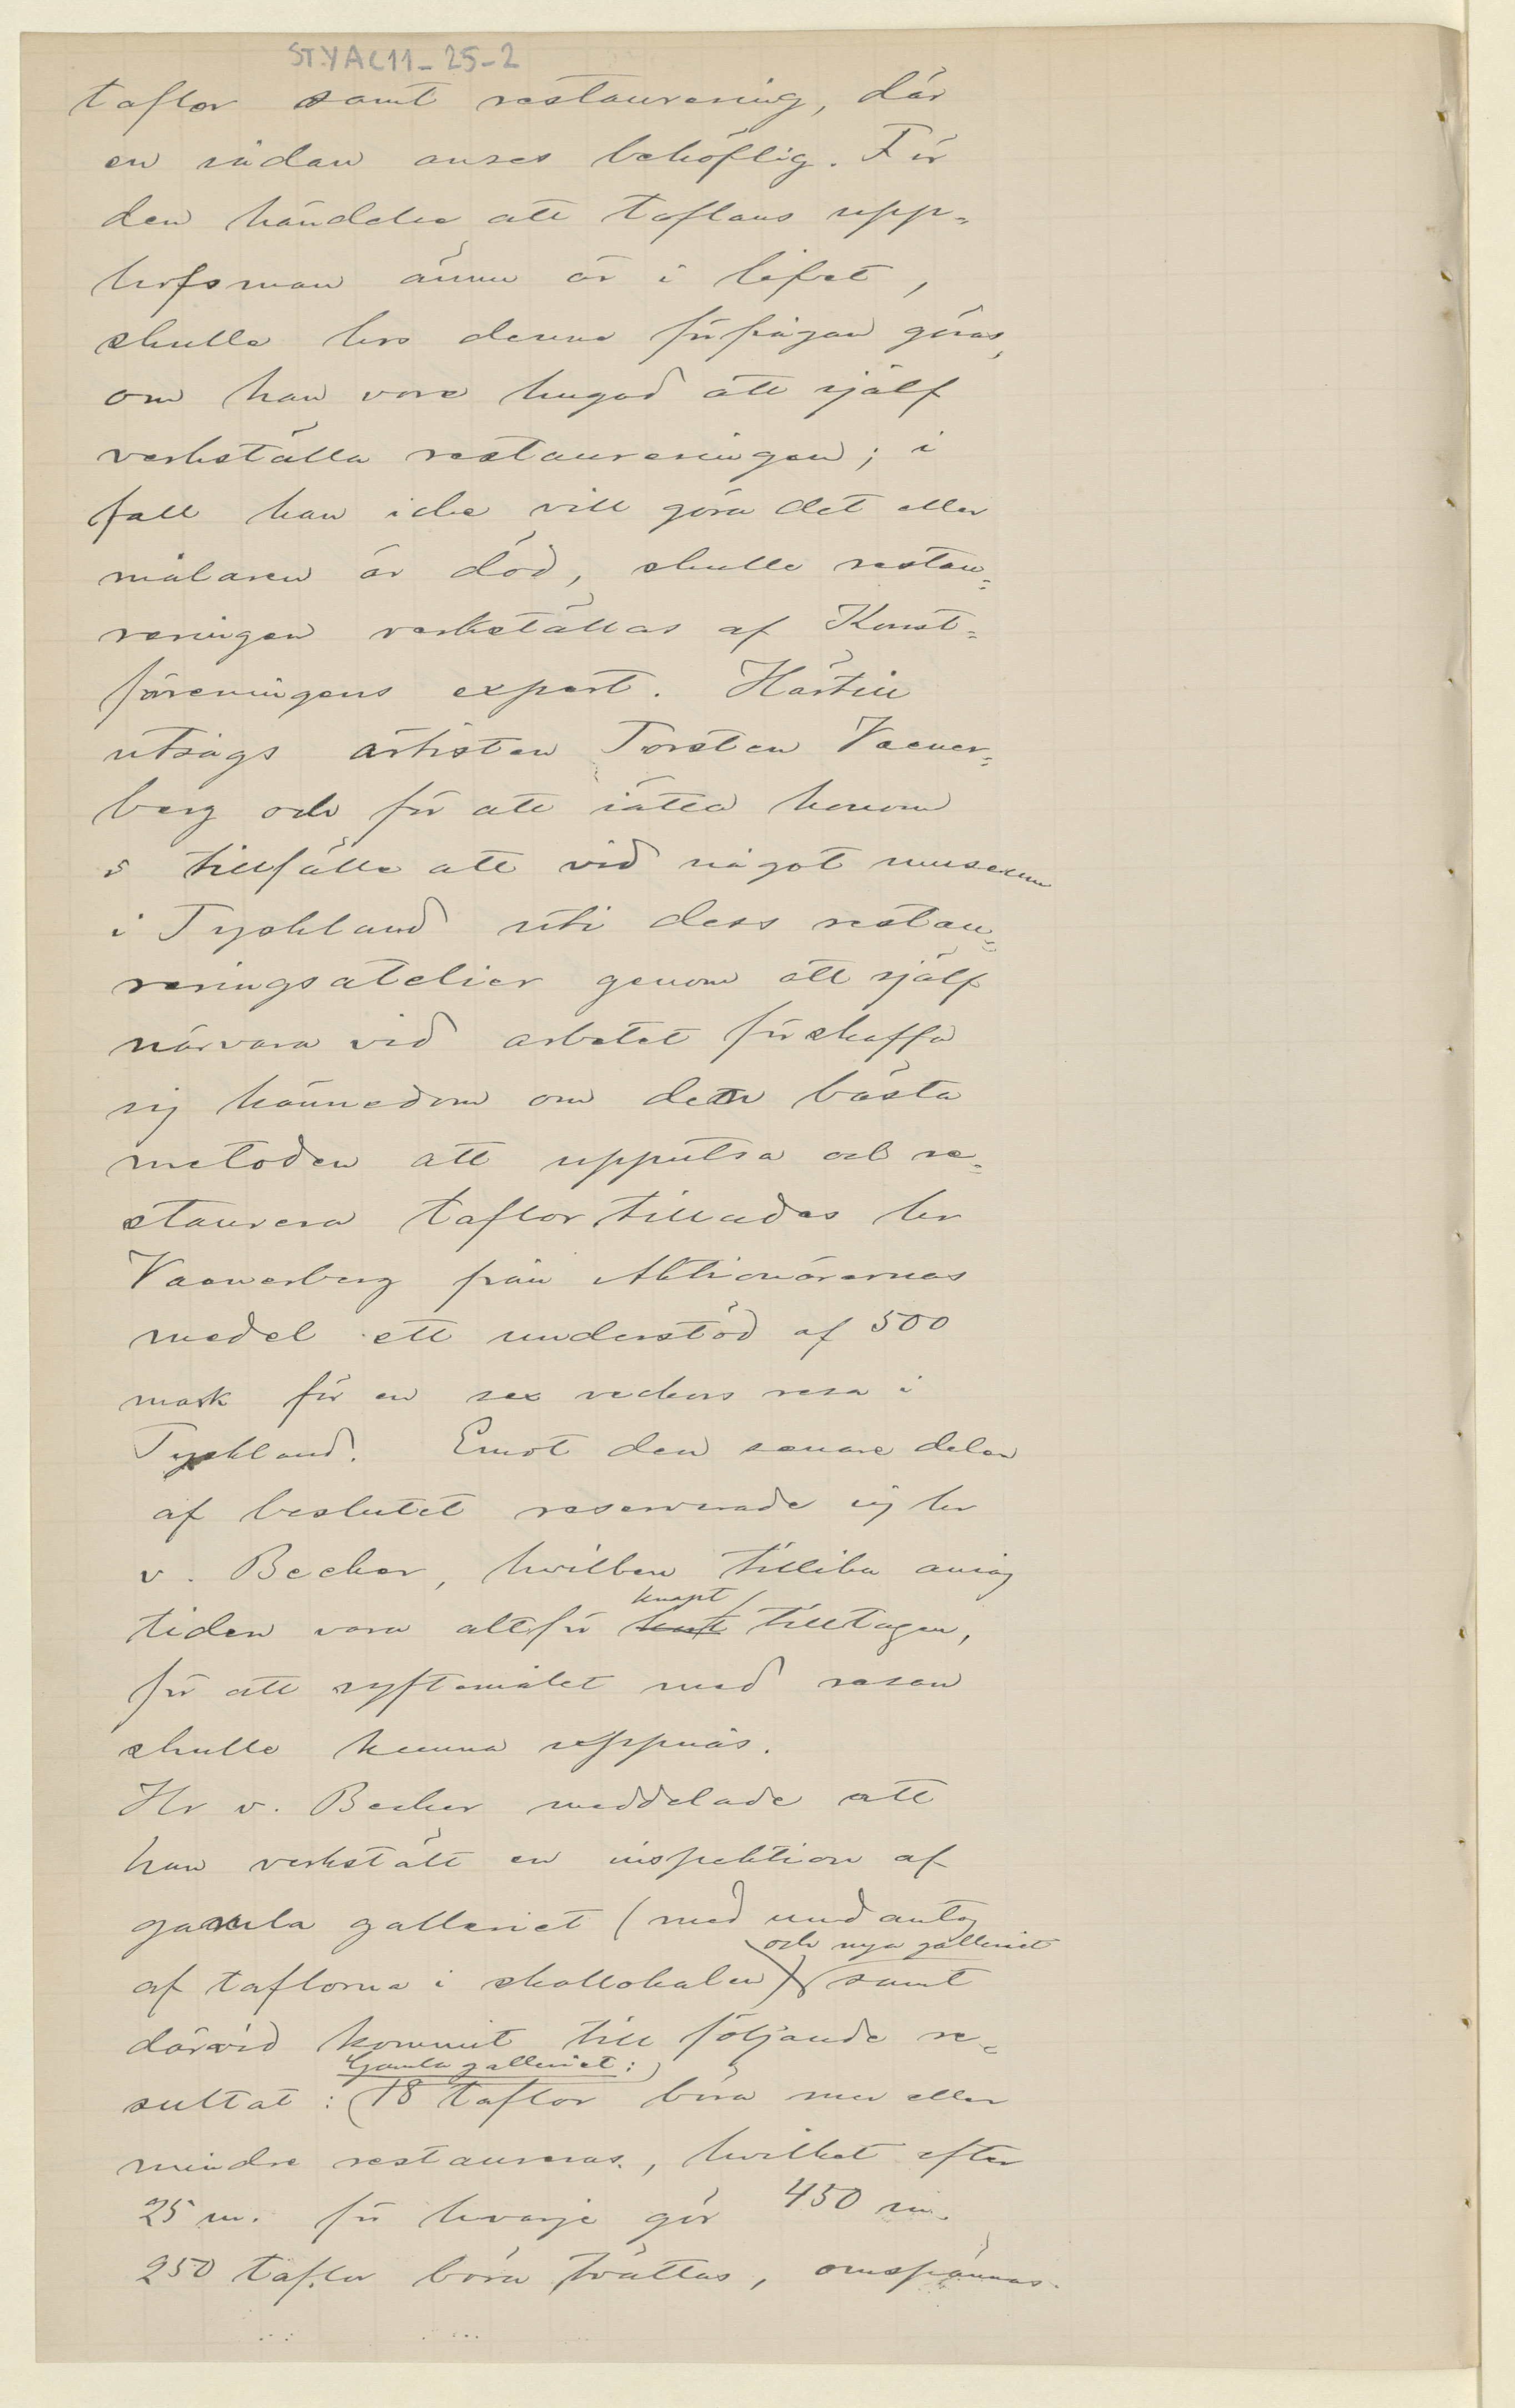 STYAC11_25-2
taflor samt restaurering, där
en sådan anses behöflig. För
den händelse att taflans upp-
hofsman ännu är i lifvet,
skulle hos denne förfrågan göras,
om han vore hugad att själf
verkställa restaureringen; i
fall han icke vill göra det eller
målaren är död, skulle restau-
reringen verkställas af Konst-
föreningens expert. Härtill
utsågs artisten Torsten Vaener-
berg och för att sätta honom
i tillfälle att vid något museum
i Tyskland uti dess restau-
reringsatelier genom att själf
närvara vid arbetet förskaffa
sig kännedom om den bästa
metoden att upputsa och re-
staurera taflor tillades hr
Vaenerberg från Aktionärernas
medel ett understöd af 500
mark för en sex veckors resa i
Tyskland. Emot den senare delen
af beslutet reserverade sig hr
v. Becker, hvilken tillika ansåg
knapt
tiden vara alltför tilltagen,
för att syftemålet med resan
skulle kunna uppnås.
Hr v. Becker meddelade att
han verkstält en inspektion af
gamla galleriet (med undantag
och nya galleriet
af taflorna i skollokalen) samt
därvid kommit till följande re-
Gamla galleriet:
sultat: 18 taflor böra mer eller
mindre restaureras, hvilket efter
25 m. för hvarje gör 450 m.
250 taflor böra tvättas, omspännas